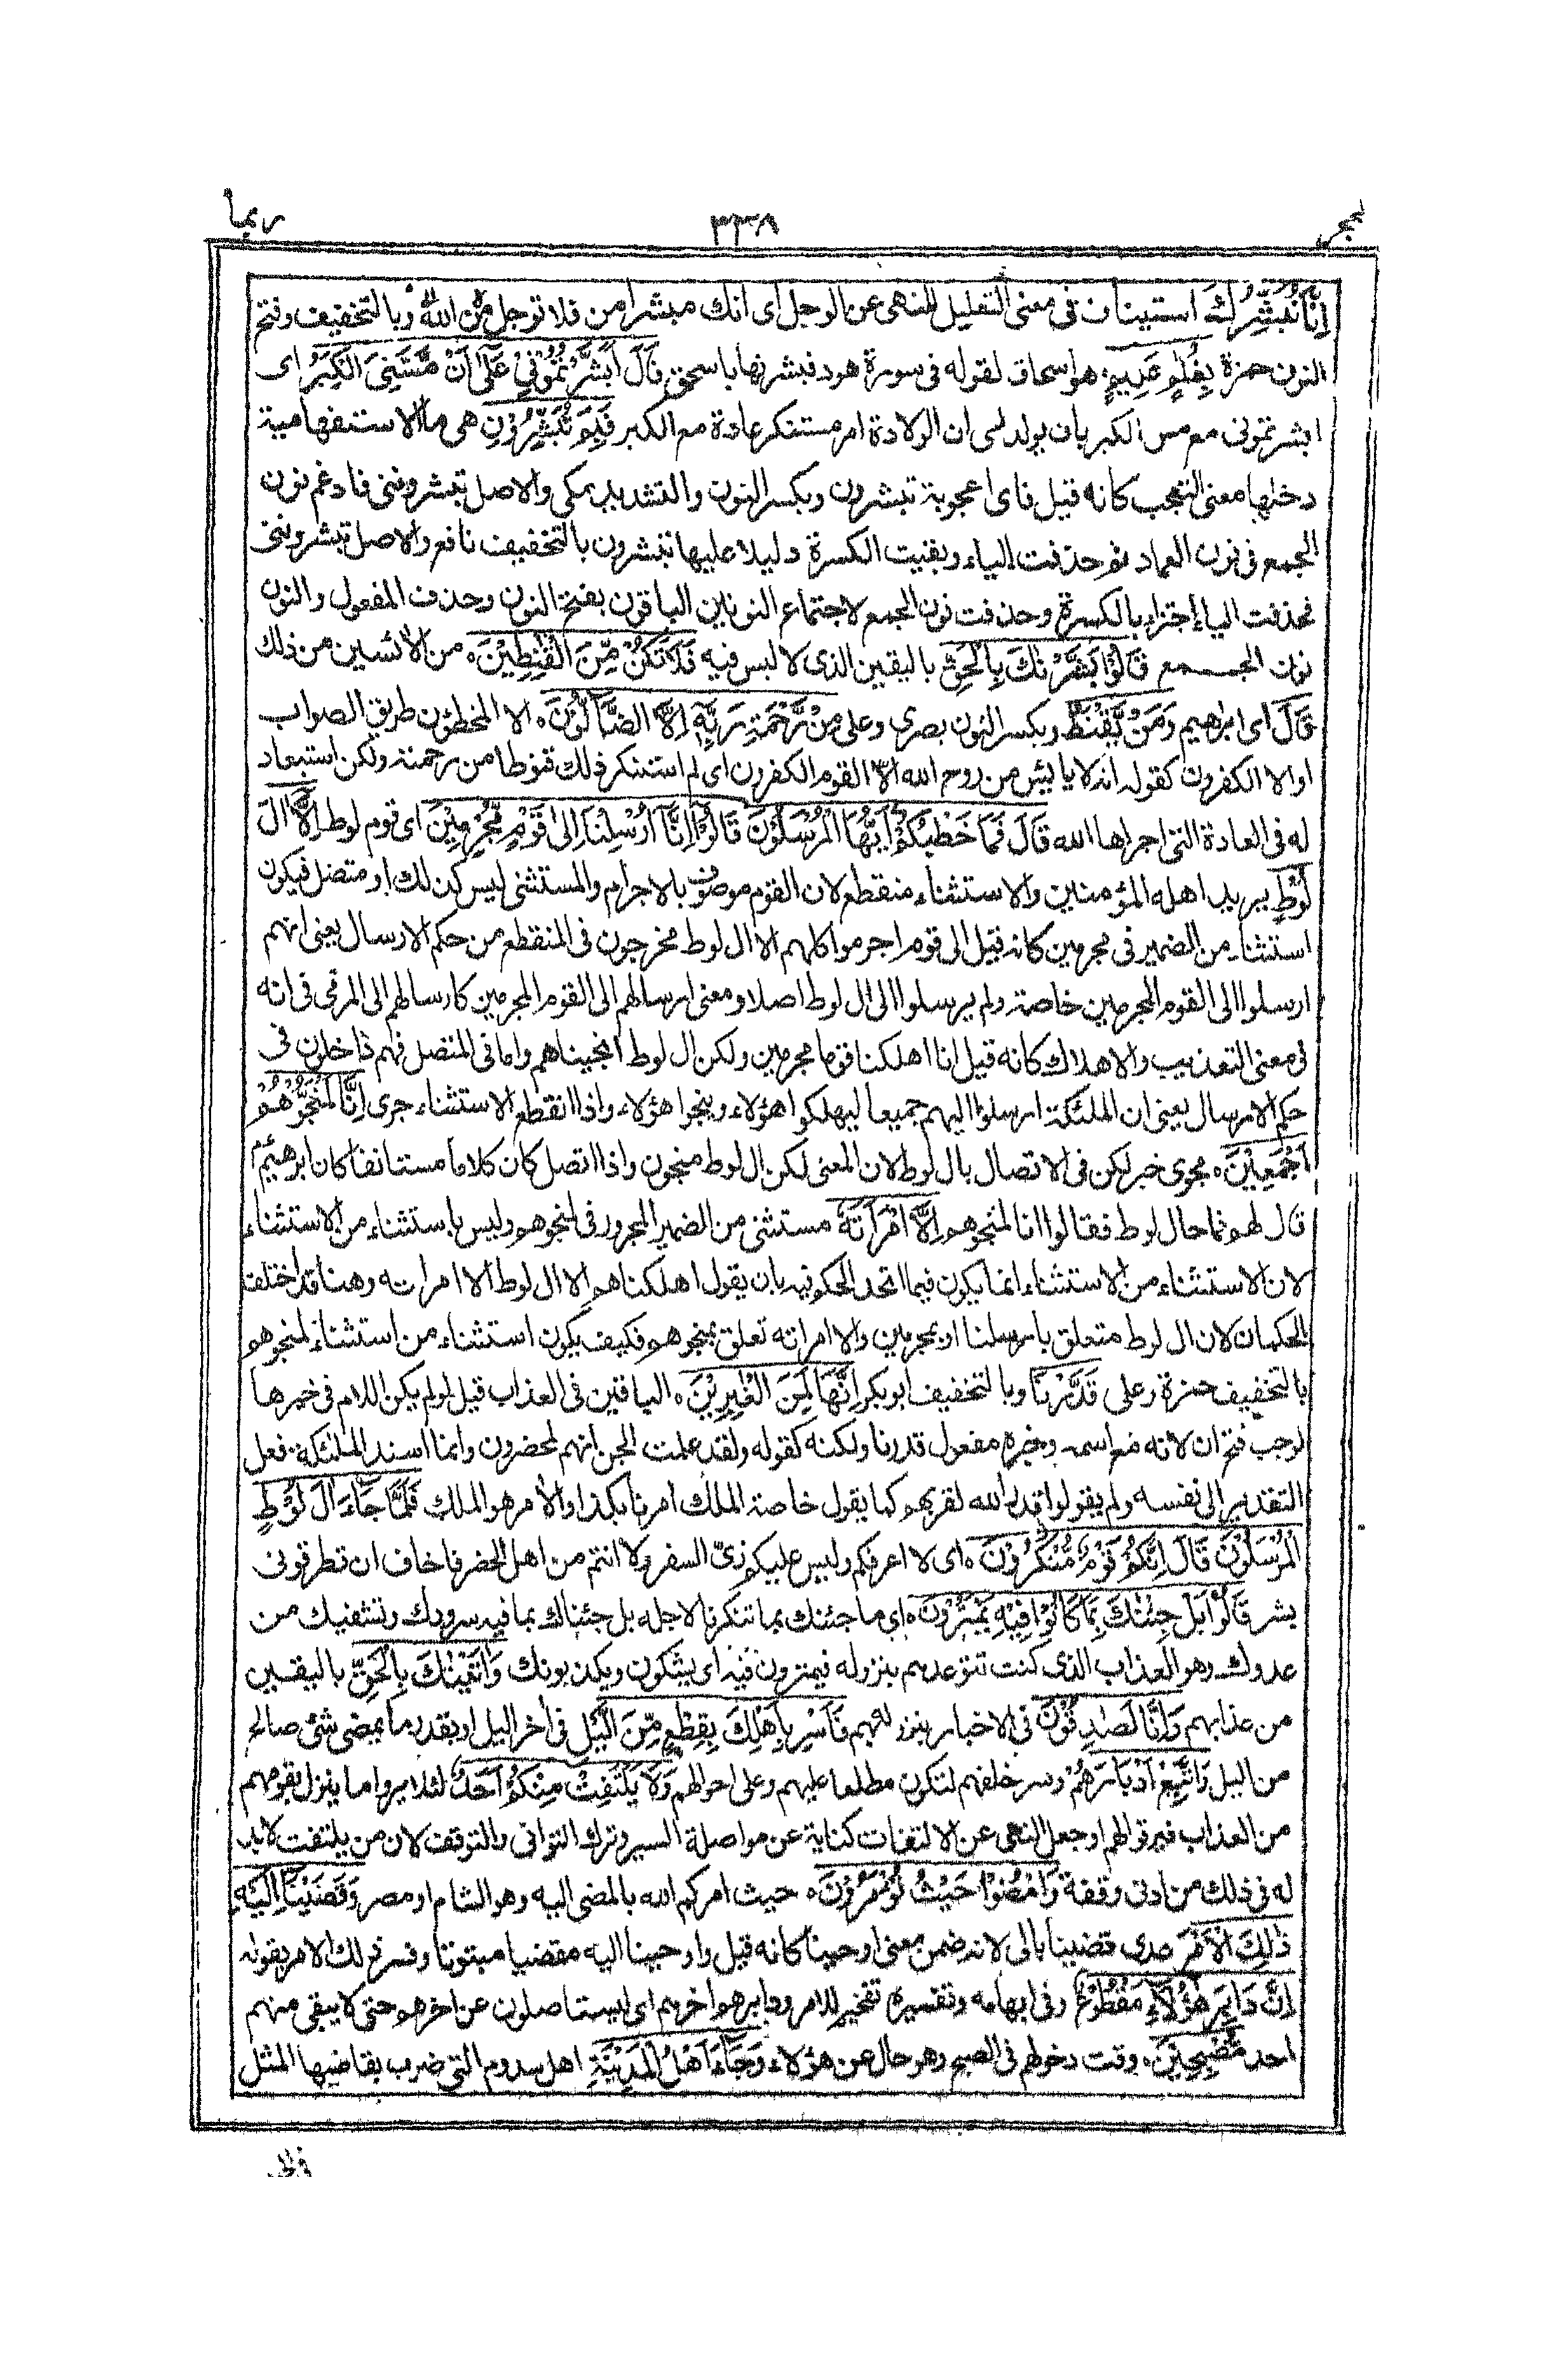 ربما ٣٣٨ الحجر
اِنَّا نُبَشِّرُكَ استيناف فى معنى التعليل للنهى عن الوجل اى انك مبشر امن فلا توجل من الله وبالتخفيف وفتح
النون حمزة بِغُلٰمٍ عَلِيْمٍ هو اسحاق لقوله فى سورة هود فبشرنها باسحق قَالَ اَبَشَّرْتُمُوْنِيْ عَلٰٓى اَنْ مَّسَّنِيَ الْكِبَرُ اى
ابشرتمونى مع مس الكبر بان يولد لى ان الولادة امر مستنكر عادة مع الكبر فَبِمَ تُبَشِّرُوْنِ هى ما الاستفهامية
دخلها معنى التعجب كانه قيل فاى اعجوبة تبشرون وبكسر النون والتشديد مكى والاصل تبشروننى فادغم نون
الجمع فى نون العماد ثم حذفت الياء وبقيت الكسرة دليلا عليها تبشرون بالتخفيف نافع والاصل تبشروننى
فحذفت الياء اجتزاء بالكسرة وحذفت نون الجمع لاجتماع النونين الباقون بفتح النون وحذف المفعول والنون
نون الجمع قَالُوْا بَشَّرْنٰكَ بِالْحَقِّ باليقين الذى لا لبس فيه فَلَا تَكُنْ مِّنَ الْقٰنِطِيْنَ ه من الائسين من ذلك
قَالَ اى ابراهيم وَمَنْ يَّقْنَطُ وبكسر النون بصرى وعلى مِنْ رَّحْمَةِ رَبِّهٖٓ اِلَّا الضَّآلُّوْنَ ه الا المخطئون طريق الصواب
او الا الكفرون كقوله انه لا يايئس من روح الله الا القوم الكفرون اى لم استنكر ذلك قنوطا من رحمته ولكن استبعاد
له فى العادة التى اجراها الله قَالَ فَمَا خَطْبُكُمْ اَيُّهَا الْمُرْسَلُوْنَ قَالُوْٓا اِنَّآ اُرْسِلْنَآ اِلٰى قَوْمٍ مُّجْرِمِيْنَ اى قوم لوط اِلَّآ اٰلَ
لُوْطٍ يريد اهله المؤمنين والاستثناء منقطع لان القوم موصوف بالاجرام والمستثنى ليس كذلك او متصل فيكون
استثناء من الضمير فى مجرمين كانه قيل الى قوم اجرموا كلهم الا ال لوط مخرجون فى المنقطع من حكم الارسال يعنى انهم
ارسلوا الى القوم المجرمين خاصة ولم يرسلوا الى ال لوط اصلا ومعنى ارسالهم الى القوم المجرمين كارسالهم الى المرمى فى انه
فى معنى التعذيب والاهلاك كانه قيل انا اهلكنا قوما مجرمين ولكن ال لوط انجيناهم واما فى المتصل فهم داخلون فى
حكم الارسال يعنى ان الملئكة ارسلوا اليهم جميعا ليهلكوا هؤلاء وينجوا هؤلاء واذا انقطع الاستثناء جرى اِنَّا لَمُنَجُّوْهُمْ
اَجْمَعِيْنَ ه مجرى خبر لكن فى الاتصال بال لوط لان المعنى لكن ال لوط منجون واذا اتصل كان كلاما مستانفا كان ابرهيم
قال لهم فما حال لوط فقالوا انا لمنجوهم اِلَّا امْرَاَتَهٗ مستثنى من الضمير المجرور فى لمنجوهم وليس باستثناء من الاستثناء
لان الاستثناء من الاستثناء انما يكون فيما اتحد الحكم فيه بان يقول اهلكناهم الا ال لوط الا امراته وهنا قد اختلف
الحكمان لان ال لوط متعلق بارسلنا او بمجرمين والا امراته تعلق بمنجوهم فكيف يكون استثناء من استثناء لمنجوهم
بالتخفيف حمزة وعلى قَدَّرْنَآ وبالتخفيف ابو بكر اِنَّهَا لَمِنَ الْغٰبِرِيْنَ ه الباقين فى العذاب قيل لو لم يكن اللام فى خبرها
لوجب فتح ان لانه مع اسمه وخبره مفعول قدرنا ولكنه كقوله ولقد علمت الجن انهم لمحضرون وانما اسند الملئكة فعل
التقدير الى نفسه ولم يقولوا قدر الله لقربهم كما يقول خاصة الملك امرنا بكذا والامر هو الملك فَلَمَّا جَآءَ اٰلَ لُوْطِ
ۨالْمُرْسَلُوْنَ قَالَ اِنَّكُمْ قَوْمٌ مُّنْكَرُوْنَ ه اى لا اعرفكم وليس عليكم زىّ السفر ولا انتم من اهل الحضر فاخاف ان تطرقونى
بشر قَالُوْا بَلْ جِئْنٰكَ بِمَا كَانُوْا فِيْهِ يَمْتَرُوْنَ ه اى ما جئنك بما تنكرنا لاجله بل جئناك بما فيه سرورك وتشفيك من
عدوك وهو العذاب الذى كنت تتوعدهم بنزوله فيمترون فيه اى يشكون ويكذبونك وَاَتَيْنٰكَ بِالْحَقِّ باليقين
من عذابهم وَاِنَّا لَصٰدِقُوْنَ فى الاخبار بنزوله بهم فَاَسْرِ بِاَهْلِكَ بِقِطْعٍ مِّنَ الَّيْلِ فى اخر اليل او بقدر ما يمضى شئ صالح
من اليل وَاتَّبِعْ اَدْبَارَهُمْ وسر خلفهم لتكون مطلعا عليهم وعلى احوالهم وَلَا يَلْتَفِتْ مِنْكُمْ اَحَدٌ لئلا يروا ما ينزل بقومهم
من العذاب فيرقوا لهم او جعل النهى عن الالتفات كناية عن مواصلة السير وترك التوانى والتوقف لان من يلتفت لابد
له فى ذلك من ادنى وقفة وَامْضُوْا حَيْثُ تُؤْمَرُوْنَ ه حيث امركم الله بالمضى اليه وهو الشام او مصر وَقَضَيْنَآ اِلَيْهِ
ذٰلِكَ الْاَمْرَ عدى قضينا بالى لانه ضمن معنى اوحينا كانه قيل واوحينا اليه مقضيا مبتوتا وفسر ذلك الامر بقوله
اِنَّ دَابِرَ هٰٓؤُلَآءِ مَقْطُوْعٌ وفى ابهامه وتفسيره تفخيم للامر ودابرهم اخرهم اى يستاصلون عن اخرهم حتى لا يبقى منهم
احد مُّصْبِحِيْنَ ه وقت دخولهم فى الصبح وهو حال عن هؤلاء وَجَآءَ اَهْلُ الْمَدِيْنَةِ اهل سدوم التى ضرب بقاضيها المثل